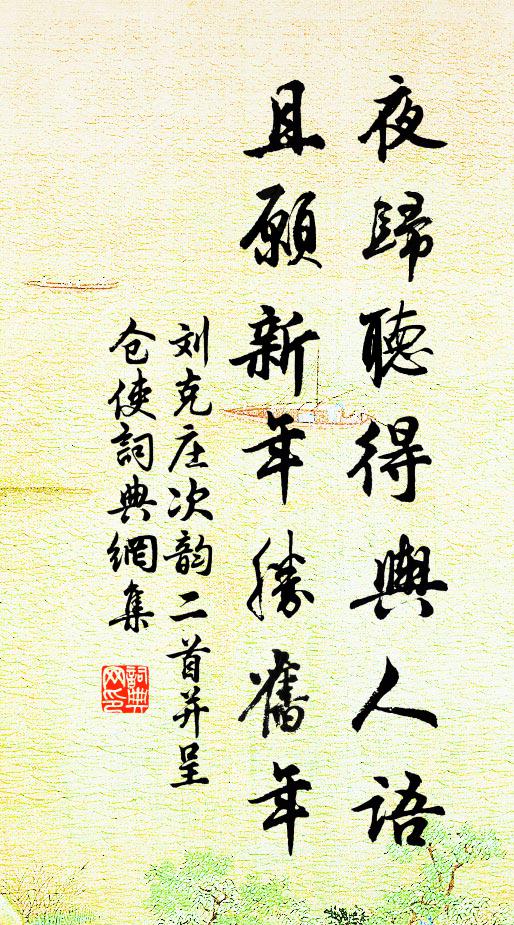 夜歸聽得輿人語
且願新年勝舊年
刘克庄次韵二首并呈
仓使詞典網集
詞典
网印